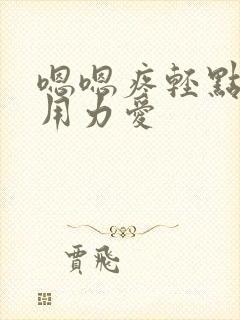 嗯嗯疼輕點
用力愛
賈飛